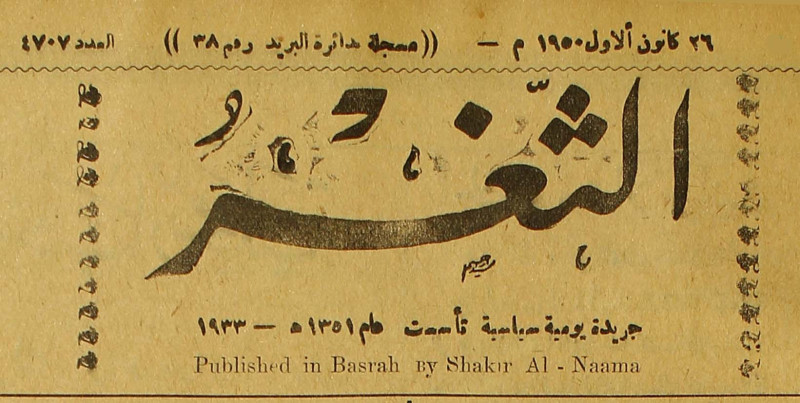 ٢٦ كانون ألاول ١٩٥٠ م — ((مسجلة بدائرة البريد رقم ٣٨)) العدد ٤٧٠٧
الثَّغْرُ
جريدة يومية سياسية تأسست عام ١٣٥١ ه — ١٩٣٣
Published in Basrah By Shakir Al - Naama